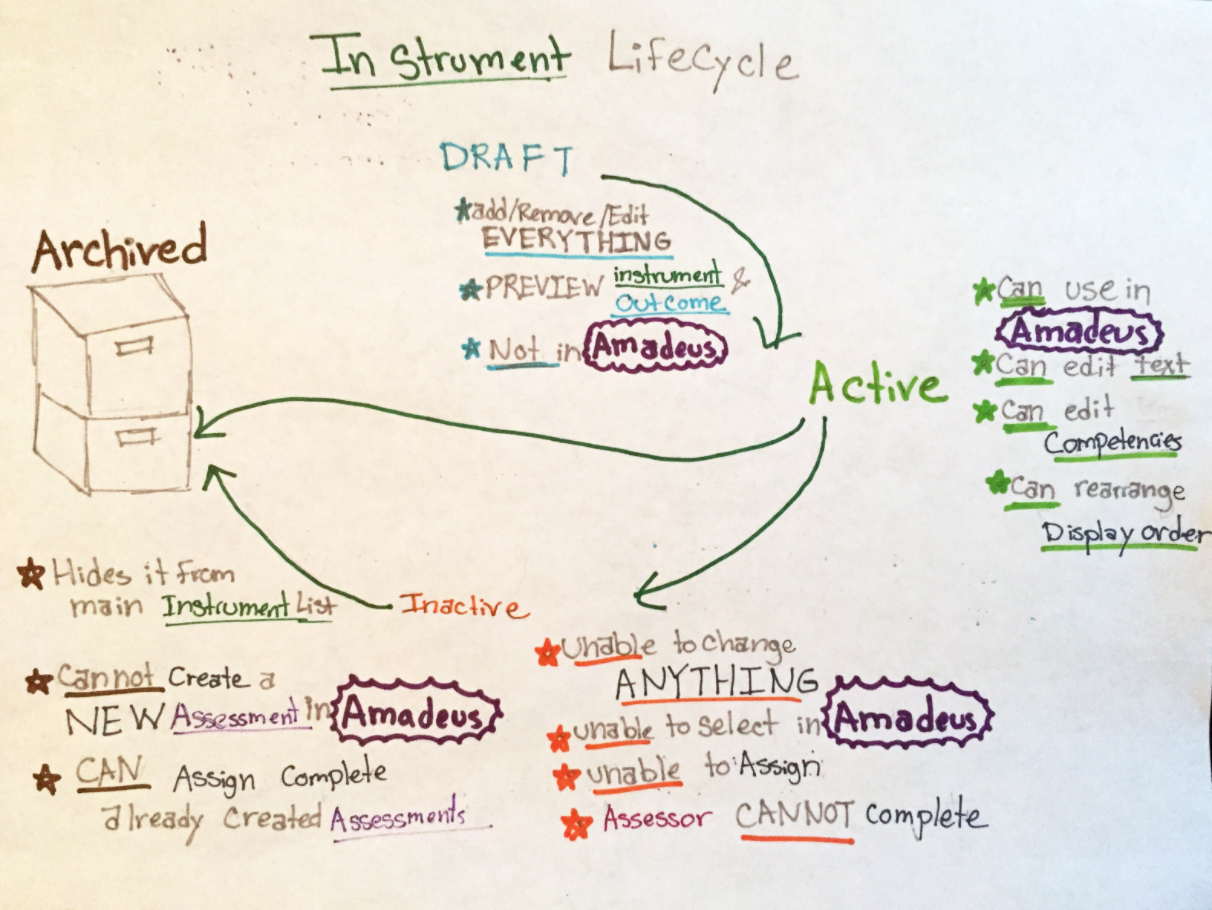 InStrument Lifecycle
DRAFT
add/Remove/Edit
EVERYTHING
PREVIEW instrument &
Outcome
Not in Amadeus
Archived
Can use in
Amadeus
Can edit text
Active
Can edit
Competencies
Can rearrange
Display order
Hides it from
main Instrument List
Inactive
Cannot Create a
NEW Assessment in Amadeus
CAN Assign Complete
already Created Assessments
unable to change
ANYTHING
unable to select in Amadeus
unable to Assign
Assessor CANNOT complete